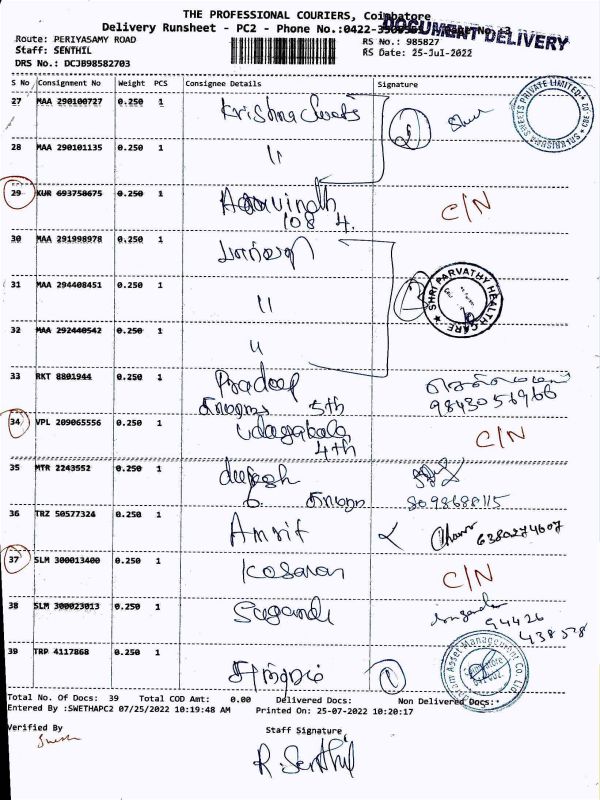 THE PROFESSIONAL COURIERS, Coimbatore
Delivery Runsheet - PC2 - Phone No.:0422-
DOCUMENT DELIVERY
Route: PERIYASAMY ROAD
RS No.: 985827
Staff: SENTHIL
RS Date: 25-Jul-2022
DRS No.: DCJB98582703
S No Consignment No Weight PCS Consignee Details Signature
27 MAA 290100727 0.250 1 Krishna Sweets 2
SRIKRISHNA SWEETS PRIVATE LIMITED
28 MAA 290101135 0.250 1 "
29 KUR 693758675 0.250 1 Aravindh C/N
108 4.
30 MAA 291998978 0.250 1 பார்வதி
SHRI PARVATHY HEALTHCARE
31 MAA 294408451 0.250 1 "
32 MAA 292440542 0.250 1 "
33 RKT 8801944 0.250 1 Pradeep
5th 9843056966
34 VPL 209065556 0.250 1 Udayabala C/N
4th
35 MTR 2243552 0.250 1 deepesh
8098688115
36 TRZ 50577324 0.250 1 Amrit 6380274607
37 SLM 300013400 0.250 1 Kesavan C/N
38 SLM 300023013 0.250 1 Sugandi
94426
43858
39 TRP 4117868 0.250 1 சுந்தரம் 1
Sundaram Asset Management Co. Ltd
Total No. Of Docs: 39 Total COD Amt: 0.00 Delivered Docs: Non Delivered Docs:
Entered By :SWETHAPC2 07/25/2022 10:19:48 AM Printed On: 25-07-2022 10:20:17
Verified By Staff Signature
R. Senthil